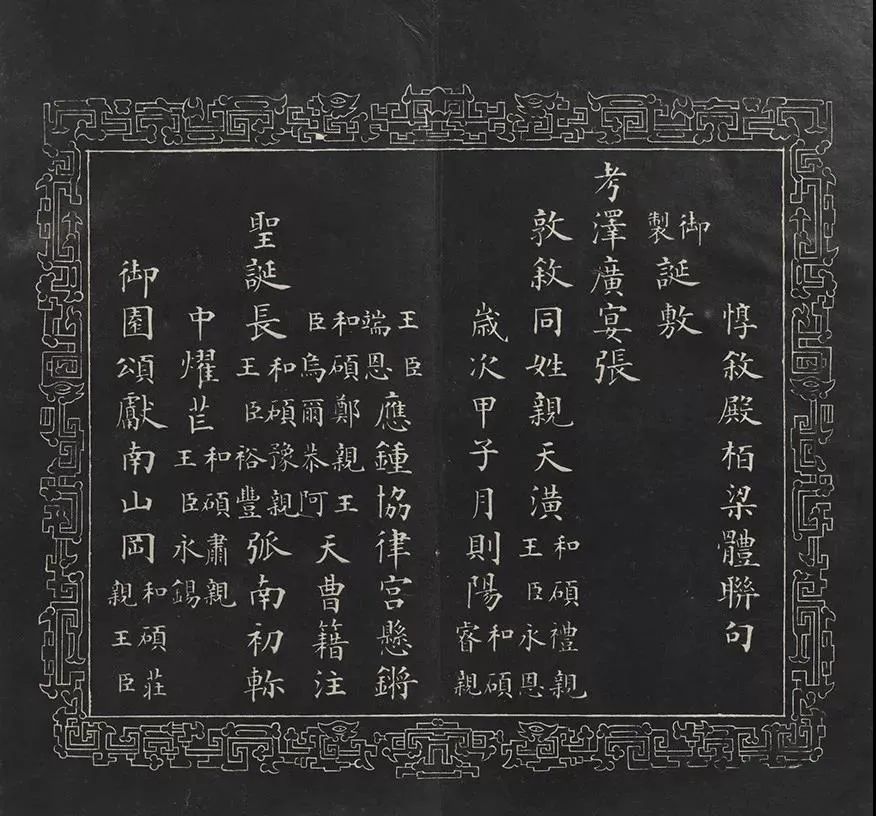 惇敘殿柏梁體聯句
御製誕敷
考澤廣宴張
敦敘同姓親天潢和碩禮親王臣永恩
歲次甲子月則陽和碩睿親
王臣端恩應鍾協律宮懸鏘
和碩鄭親王臣烏爾恭阿天曹籍注
聖誕長和碩豫親王臣裕豐弧南初軫
中燿芒和碩肅親王臣永錫
御園頌獻南山岡和碩莊親王臣